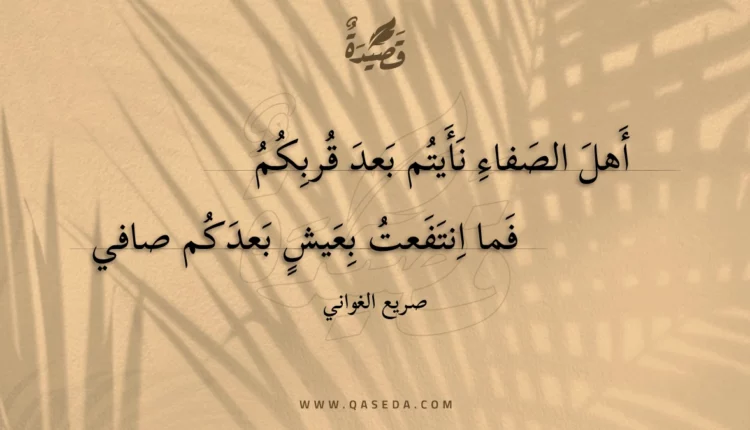 قَصِيْدَةٌ
أَهلَ الصَفاءِ نَأَيتُم بَعدَ قُربِكُمُ
فَما اِنتَفَعتُ بِعَيشٍ بَعدَكُم صافي
صريع الغواني
WWW.QASEDA.COM